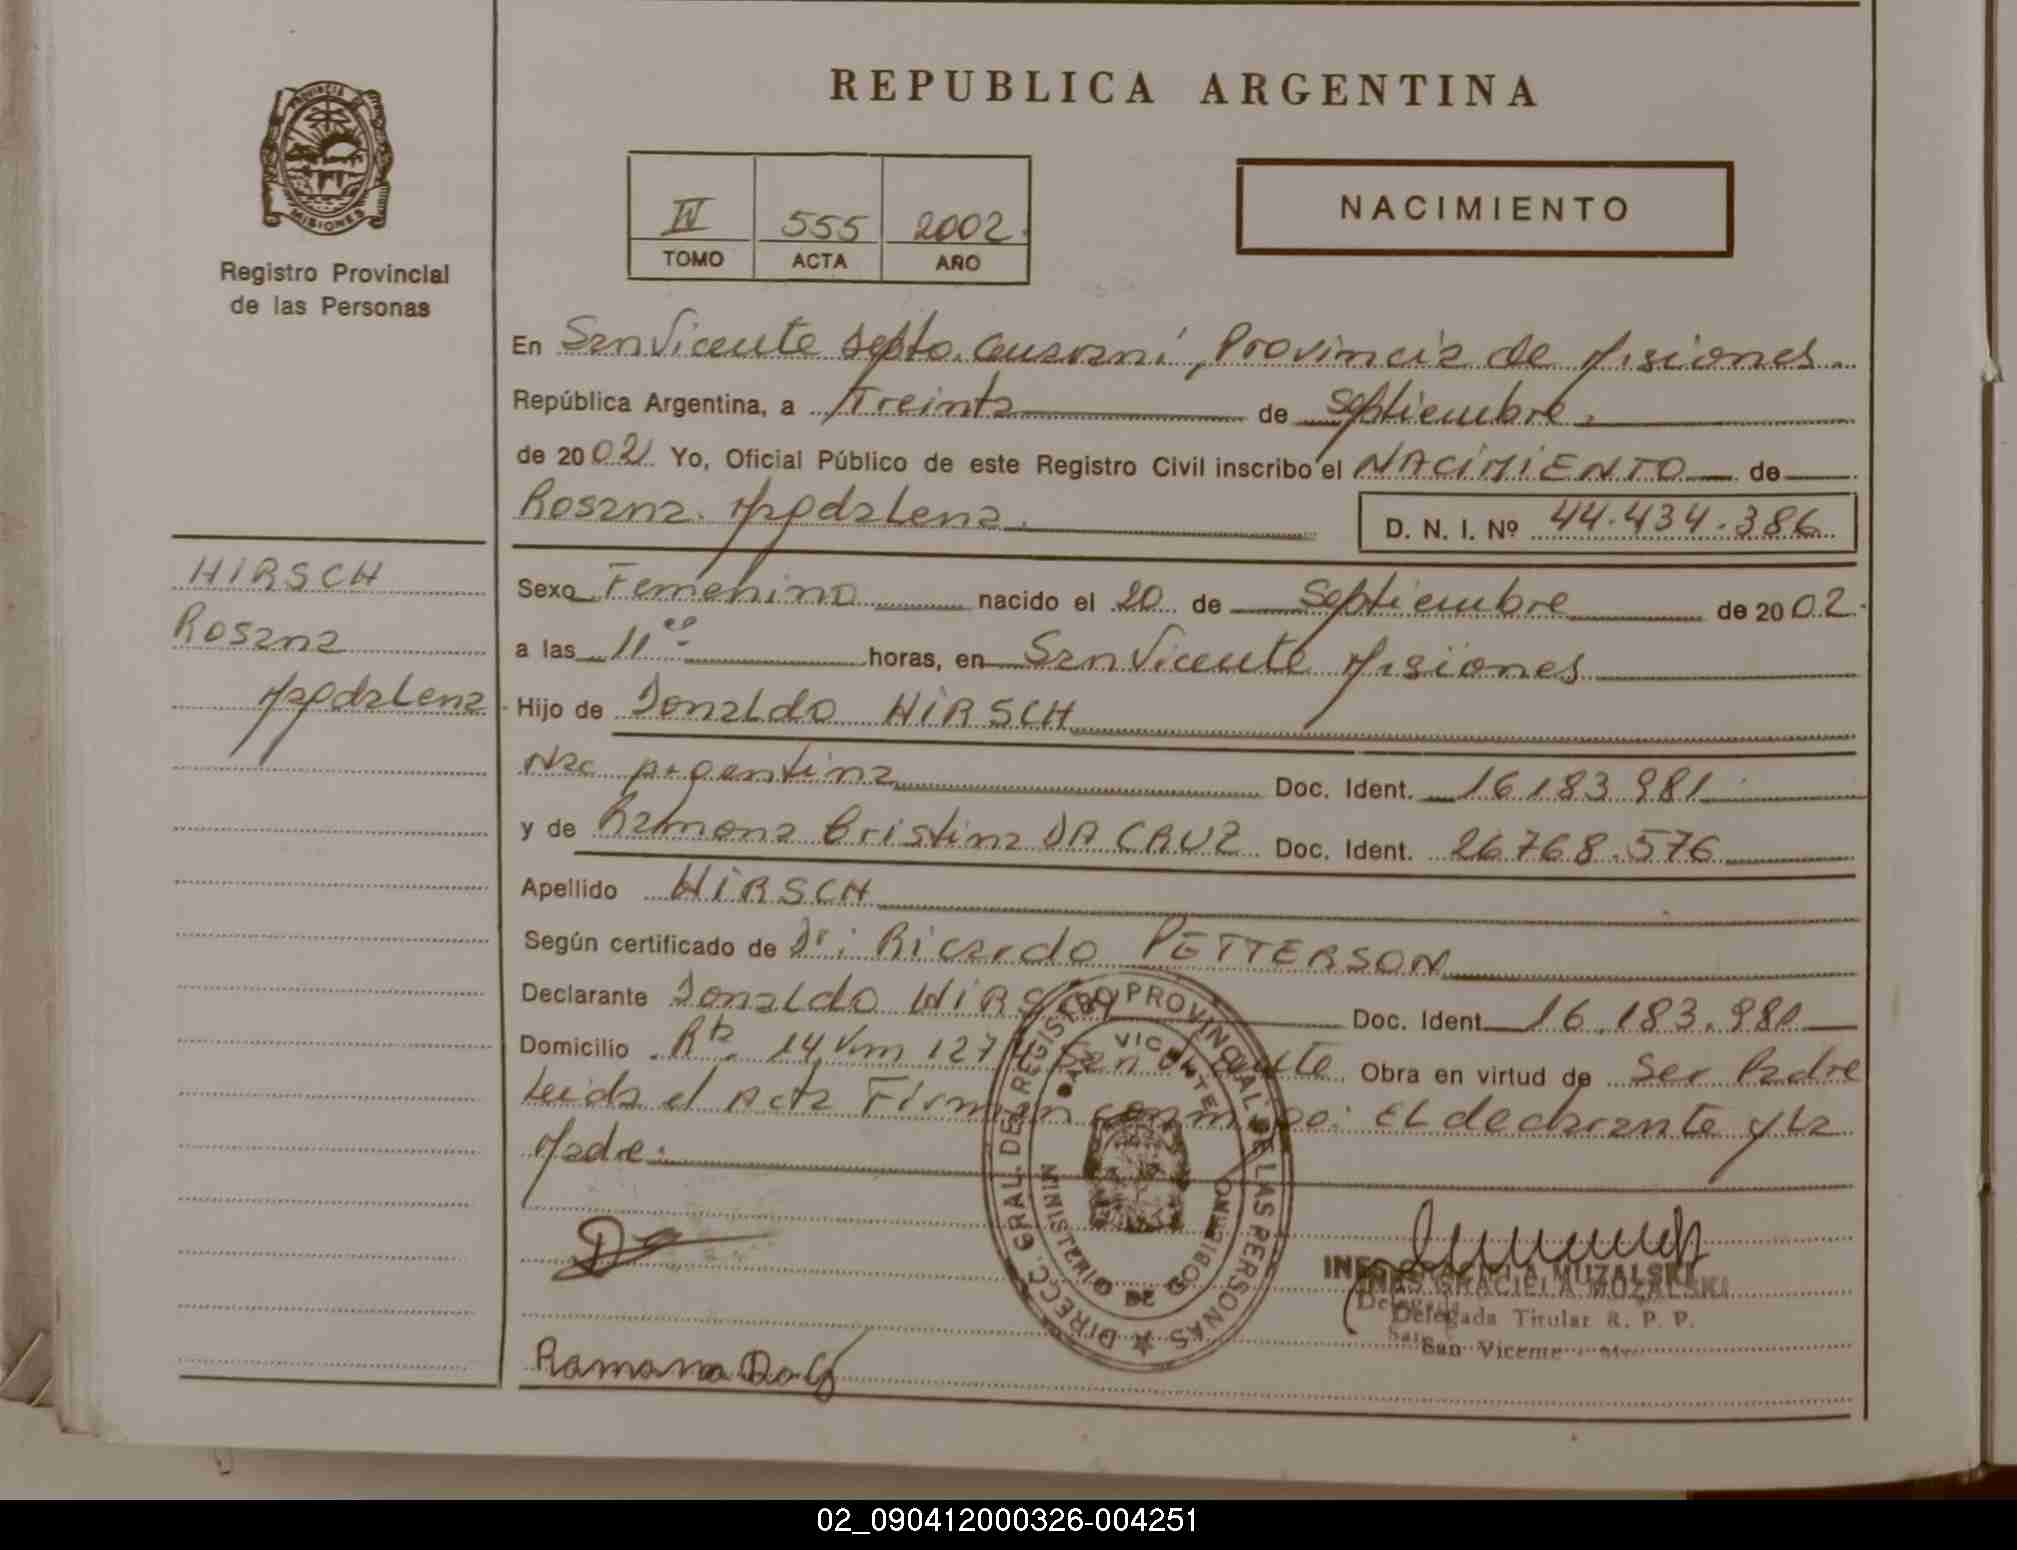 REPUBLICA ARGENTINA
PROVINCIA DE
MISIONES
Registro Provincial
de las Personas
IV 555 2002
TOMO ACTA AÑO
NACIMIENTO
En San Vicente Depto. Guaraní, Provincia de Misiones
República Argentina, a Treinta de Septiembre
de 2002 Yo, Oficial Público de este Registro Civil inscribo el NACIMIENTO de
Rosana Magdalena D. N. I. Nº 44.434.386
HIRSCH
Rosana
Magdalena
Sexo Femenino nacido el 20 de Septiembre de 2002
a las 11 horas, en San Vicente Misiones
Hijo de Donaldo HIRSCH
Nac Argentina Doc. Ident. 16.183.981
y de Ramona Cristina DA CRUZ Doc. Ident. 26.768.576
Apellido HIRSCH
Según certificado de Dr: Ricardo PETTERSON
Declarante Donaldo HIRSCH Doc. Ident. 16.183.981
Domicilio Rta. 14 Km 127 San Vicente Obra en virtud de Ser Padre
Leida el Acta Firman conmigo: El declarante y la
Madre.
DIRECC. GRAL. DEL REGISTRO PROVINCIAL DE LAS PERSONAS
SAN VICENTE
MINISTERIO DE GOBIERNO
INES GRACIELA MUZALSKI
Delegada Titular R. P. P.
San Vicente
Ramona Da C
02_090412000326-004251